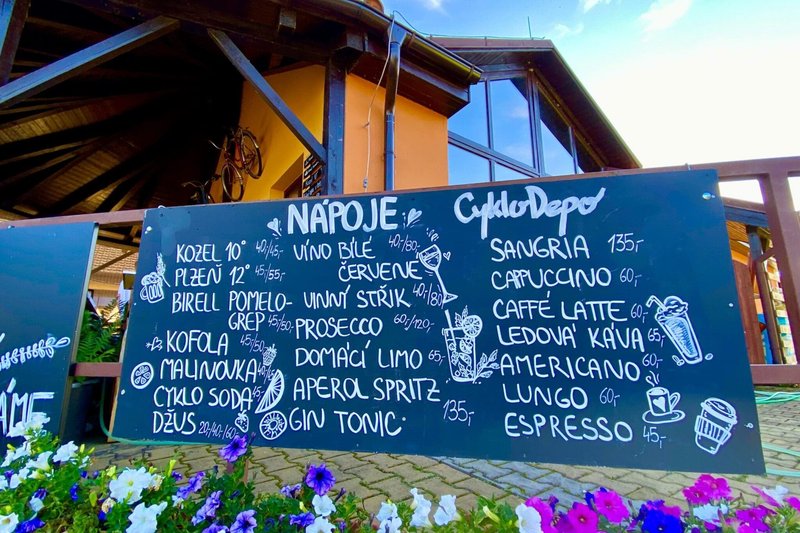 NÁPOJE
CykloDepo
KOZEL 10° 40,-/45,-
PLZEŇ 12° 45/55,-
BIRELL POMELO-
GREP 45,/50,-
KOFOLA 45/50,-
MALINOVKA 40/50
CYKLO SODA 45,-
DŽUS 20,-/40,-/60,-
VÍNO BÍLÉ 40,-/80,-
ČERVENÉ
VINNÝ STŘIK 40,-/80,-
PROSECCO 60,-/120,-
DOMÁCÍ LIMO 65,-
APEROL SPRITZ 135,-
GIN TONIC
SANGRIA 135,-
CAPPUCCINO 60,-
CAFFÉ LATTE 60,-
LEDOVÁ KÁVA 65,-
AMERICANO 60,-
LUNGO 60,-
ESPRESSO 45,-
ÁME